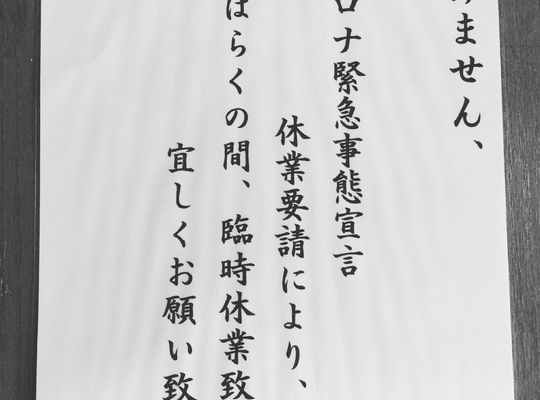 ません、
ロナ緊急事態宣言
休業要請により、
ばらくの間、臨時休業致
宜しくお願い致